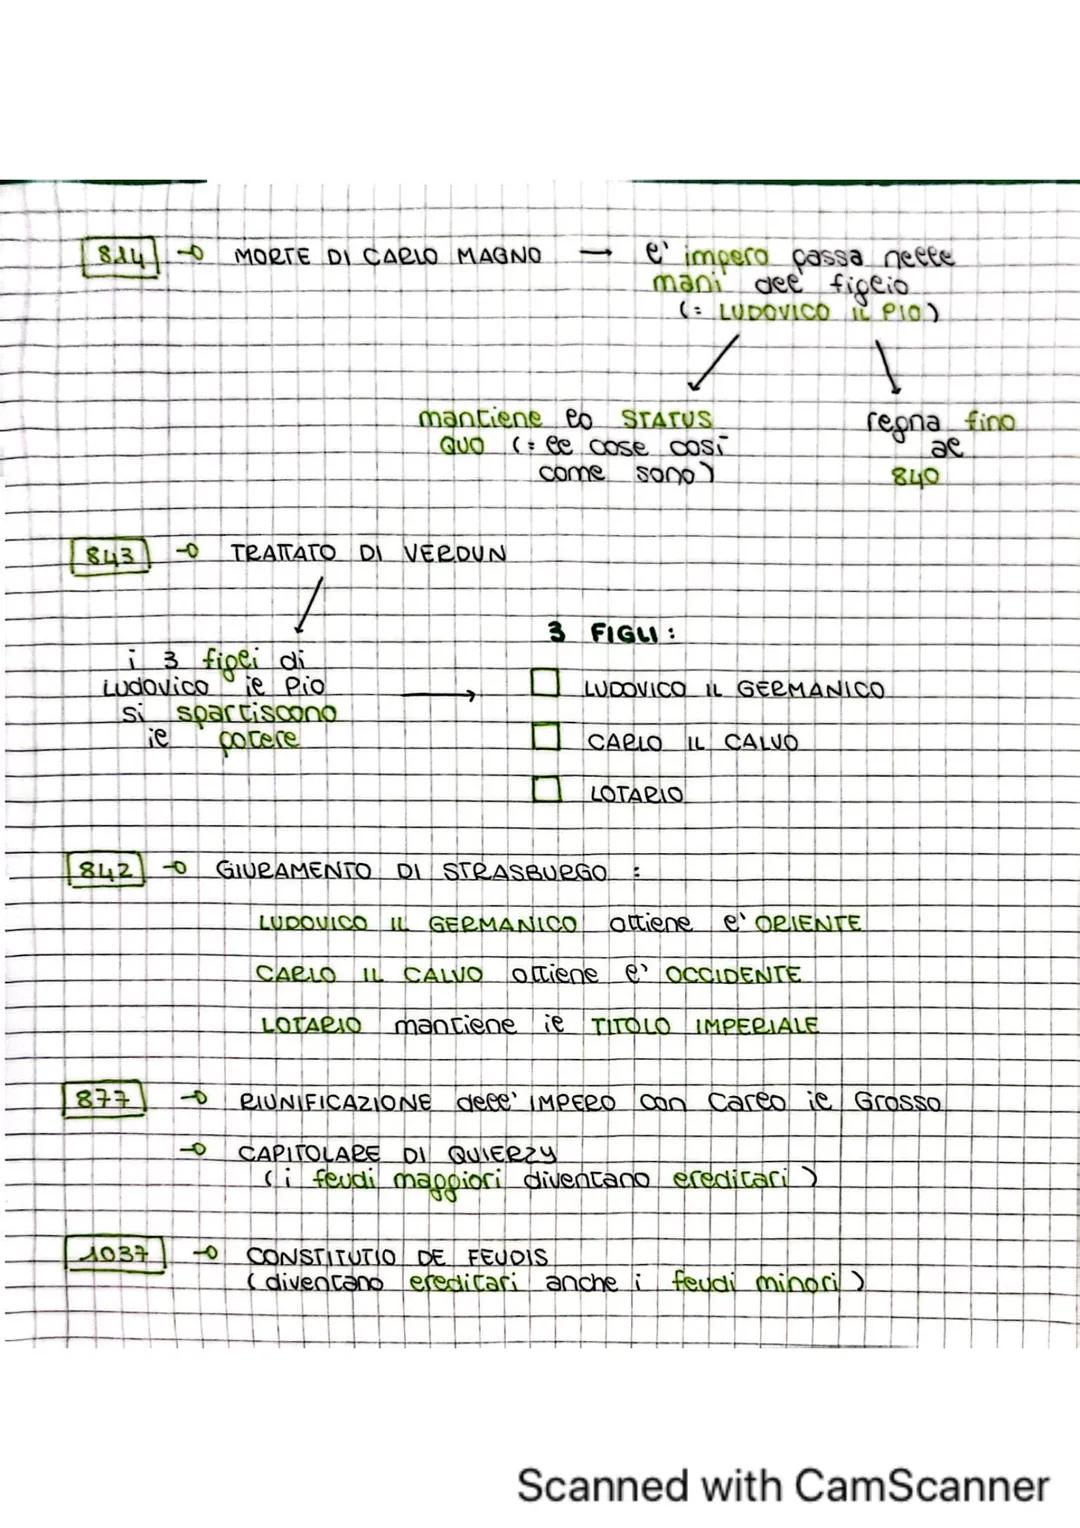 814 → MORTE DI CARLO MAGNO → l' impero passa nelle
mani del figlio
(= LUDOVICO IL PIO)
mantiene lo STATUS
QUO (= le cose così
come sono)
regna fino
al
840
843 → TRATTATO DI VERDUN
i 3 figli di
Ludovico il Pio
si spartiscono
il potere
3 FIGLI:
LUDOVICO IL GERMANICO
CARLO IL CALVO
LOTARIO
842 → GIURAMENTO DI STRASBURGO :
LUDOVICO IL GERMANICO ottiene l' ORIENTE
CARLO IL CALVO ottiene l' OCCIDENTE
LOTARIO mantiene il TITOLO IMPERIALE
877 → RIUNIFICAZIONE dell' IMPERO con Carlo il Grosso
→ CAPITOLARE DI QUIERZY
(i feudi maggiori diventano ereditari)
1037 → CONSTITUTIO DE FEUDIS
(diventano ereditari anche i feudi minori)
Scanned with CamScanner